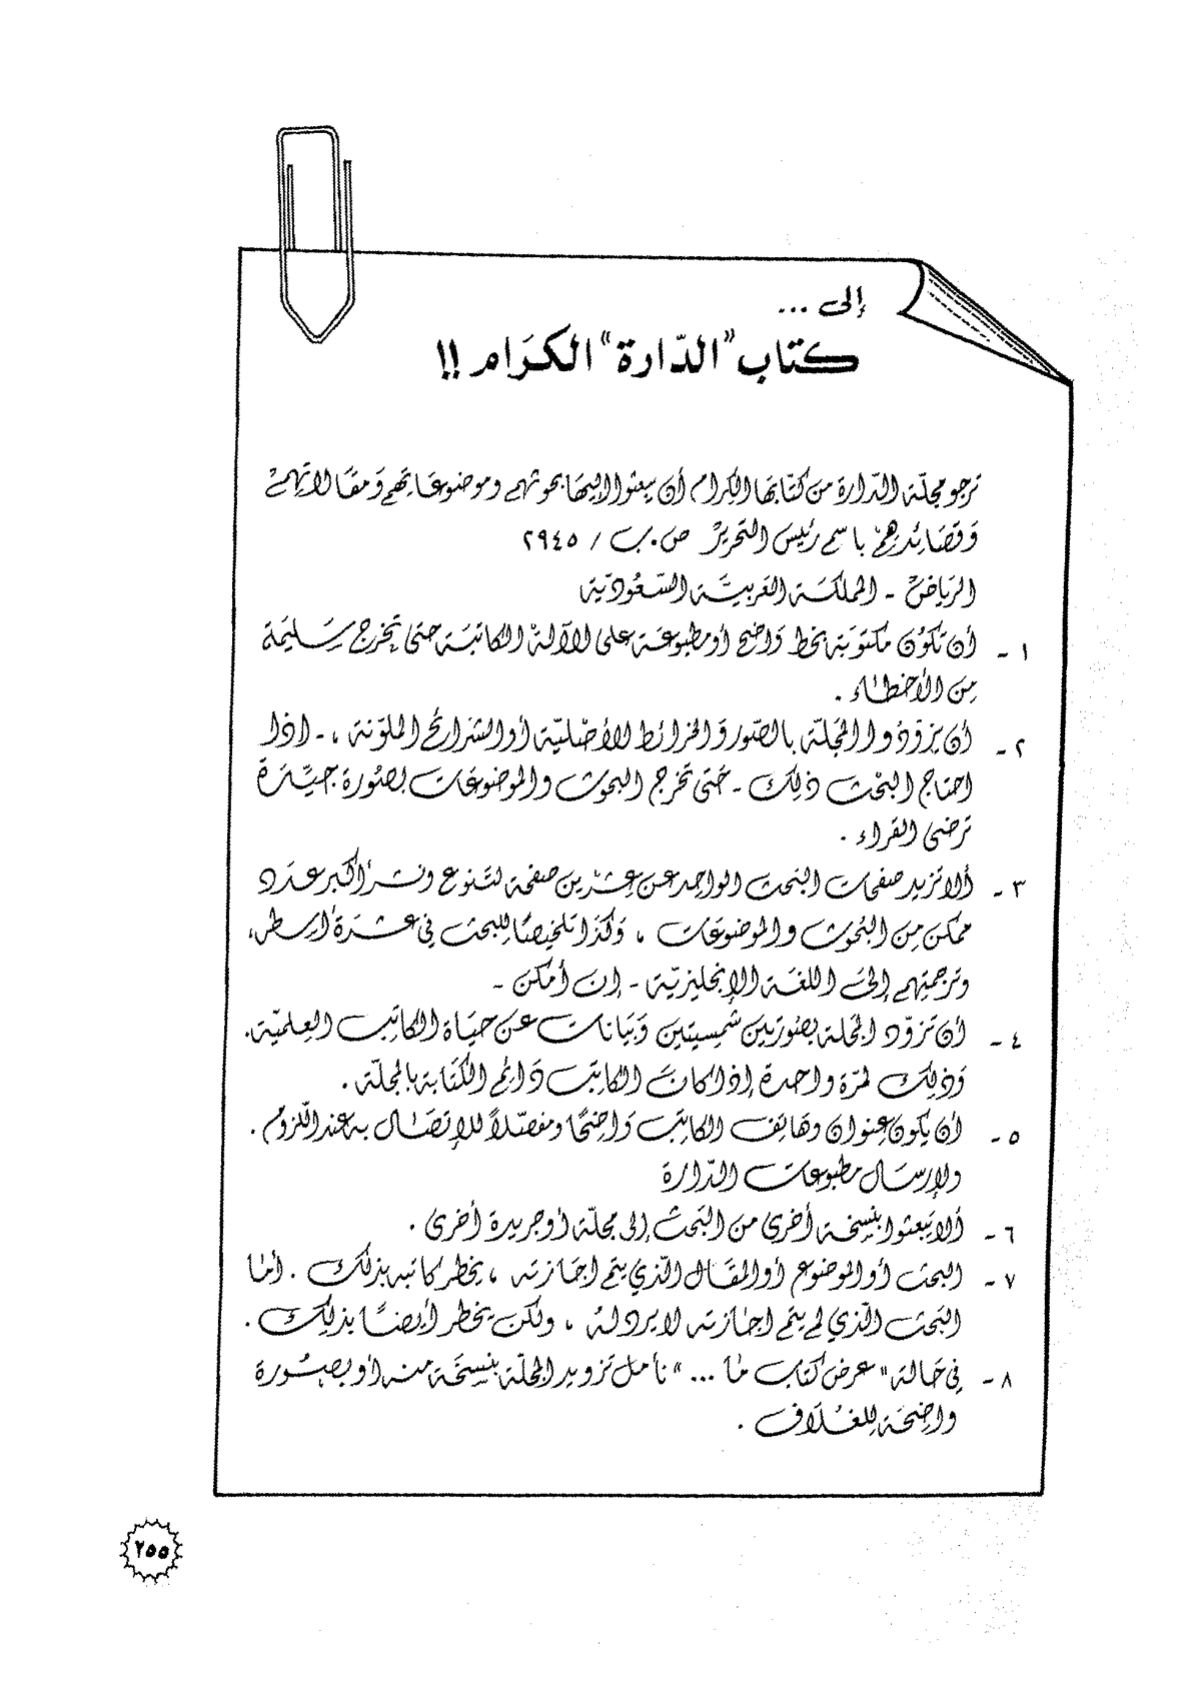 إلى ...
كتاب "الدّارة" الكرَام !!
ترجو مجلّة الدّارة من كتّابها الكِرام أن يبعثوا إليها بحوثهم وموضوعَاتِهم وَمقَالاتهمْ
وَقصَائدهِمْ باسم رئيس التحريرْ ص.ب / ٢٩٤٥
الريَاضْ - المملكَة العَربيَّة السّعُوديّة
١ - أن تكوُن مكتوبَة بخط وَاضح أو مطبوعَة على الآلة الكاتبَة حتى تخرج سَليمَة
مِن الأخطاء .
٢ - أن يزوّدُوا المجَلّة بالصّور وَالخرائط الأصْليّة أو الشرائح الملوّنة ، - إذا
احتاج البحْث ذلِك - حَتى تخرج البحوث والموضوعَات بصُورة جيّدَة
ترضى القراء .
٣ - ألا تزيد صفحات البَحث الواحِد عَن عِشرْين صفحة لتَنوع ونشر أكبر عَدَد
ممكن مِن البُحوث والموضوعَات ، وَكذَا تلخيصًا للبحث فِي عشرَة أسطر،
وترجمتهم إلىَ اللغَة الإنجليزيّة - إن أمكن -
٤ - أن تزوّد المجَلة بصُورتَين شمسِيتَين وَبيَانات عَن حيَاة الكاتِب العِلميّة.
وَذلِك لمرّة واحدة إذا كانَ الكاتِب دَائم الكتَابة بالمجلّة .
٥ - أن يكون عِنوان وهَاتف الكاتِب وَاضِحًا ومفصّلاً للاتصَال به عند اللّزوم .
ولإرسَال مطبوعَات الدّارة
٦ - ألا يَبعثوا بنسِخَة أخرى من البَحث إلى مجلّة أو جريدة أخرى .
٧ - البحث أو الموضوع أو المقَال الّذي يتم اجَازته ، يخطر كاتبه بذلك . أما
البَحث الّذي لم يتم اجازته لا يرد لهُ ، ولكن يخطر أيضًا بذلِك .
٨ - فِي حَالة "عرض كتاب مَا ..." نأمل تزويد المجلّة بنسِخَة منه أو بصُورة
واضِحَة للغُلَاف .
٢٥٥